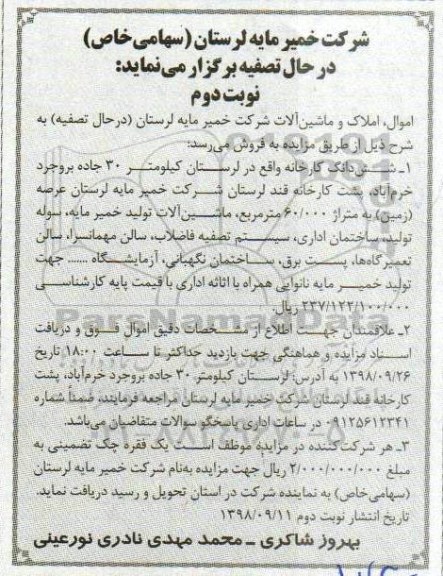 شرکت خمیر مایه لرستان (سهامی خاص)
در حال تصفیه برگزار می‌نماید:
نوبت دوم
اموال، املاک و ماشین‌آلات شرکت خمیر مایه لرستان (درحال تصفیه) به
شرح ذیل از طریق مزایده به فروش می‌رسد:
۱ـ شش‌دانگ کارخانه واقع در لرستان کیلومتر ۳۰ جاده بروجرد
خرم‌آباد، پشت کارخانه قند لرستان شرکت خمیر مایه لرستان عرصه
(زمین) به متراژ ۶۰/۰۰۰ مترمربع، ماشین‌آلات تولید خمیر مایه، سوله
تولید، ساختمان اداری، سیستم تصفیه فاضلاب، سالن مهمانسرا، سالن
تعمیرگاه‌ها، پست برق، ساختمان نگهبانی، آزمایشگاه ...... جهت
تولید خمیر مایه نانوایی همراه با اثاثه اداری با قیمت پایه کارشناسی
۲۳۷/۱۲۲/۱۰۰/۰۰۰ ریال.
۲ـ علاقمندان جهت اطلاع از مشخصات دقیق اموال فوق و دریافت
اسناد مزایده و هماهنگی جهت بازدید حداکثر تا ساعت ۱۸:۰۰ تاریخ
۱۳۹۸/۰۹/۲۶ به آدرس: لرستان کیلومتر ۳۰ جاده بروجرد خرم‌آباد، پشت
کارخانه قند لرستان شرکت خمیر مایه لرستان مراجعه فرمایند، ضمناً شماره
۰۹۱۲۵۶۱۲۳۴۱ در ساعات اداری پاسخگو سوالات متقاضیان می‌باشد.
۳ـ هر شرکت‌کننده در مزایده موظف است یک فقره چک تضمینی به
مبلغ ۲/۰۰۰/۰۰۰/۰۰۰ ریال جهت مزایده به‌نام شرکت خمیر مایه لرستان
(سهامی خاص) به نماینده شرکت در استان تحویل و رسید دریافت نماید.
تاریخ انتشار نوبت دوم ۱۳۹۸/۰۹/۱۱
بهروز شاکری ـ محمد مهدی نادری نورعینی
ParsNamadData